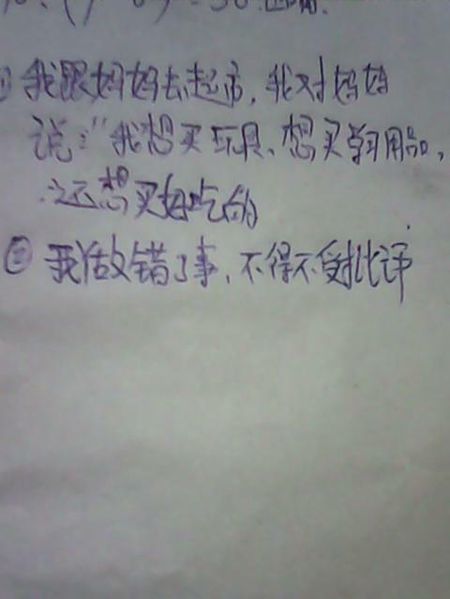 ① 我跟妈妈去超市，我对妈妈
说："我想买玩具、想买学习用品，
还想买好吃的
② 我做错了事，不得不受批评